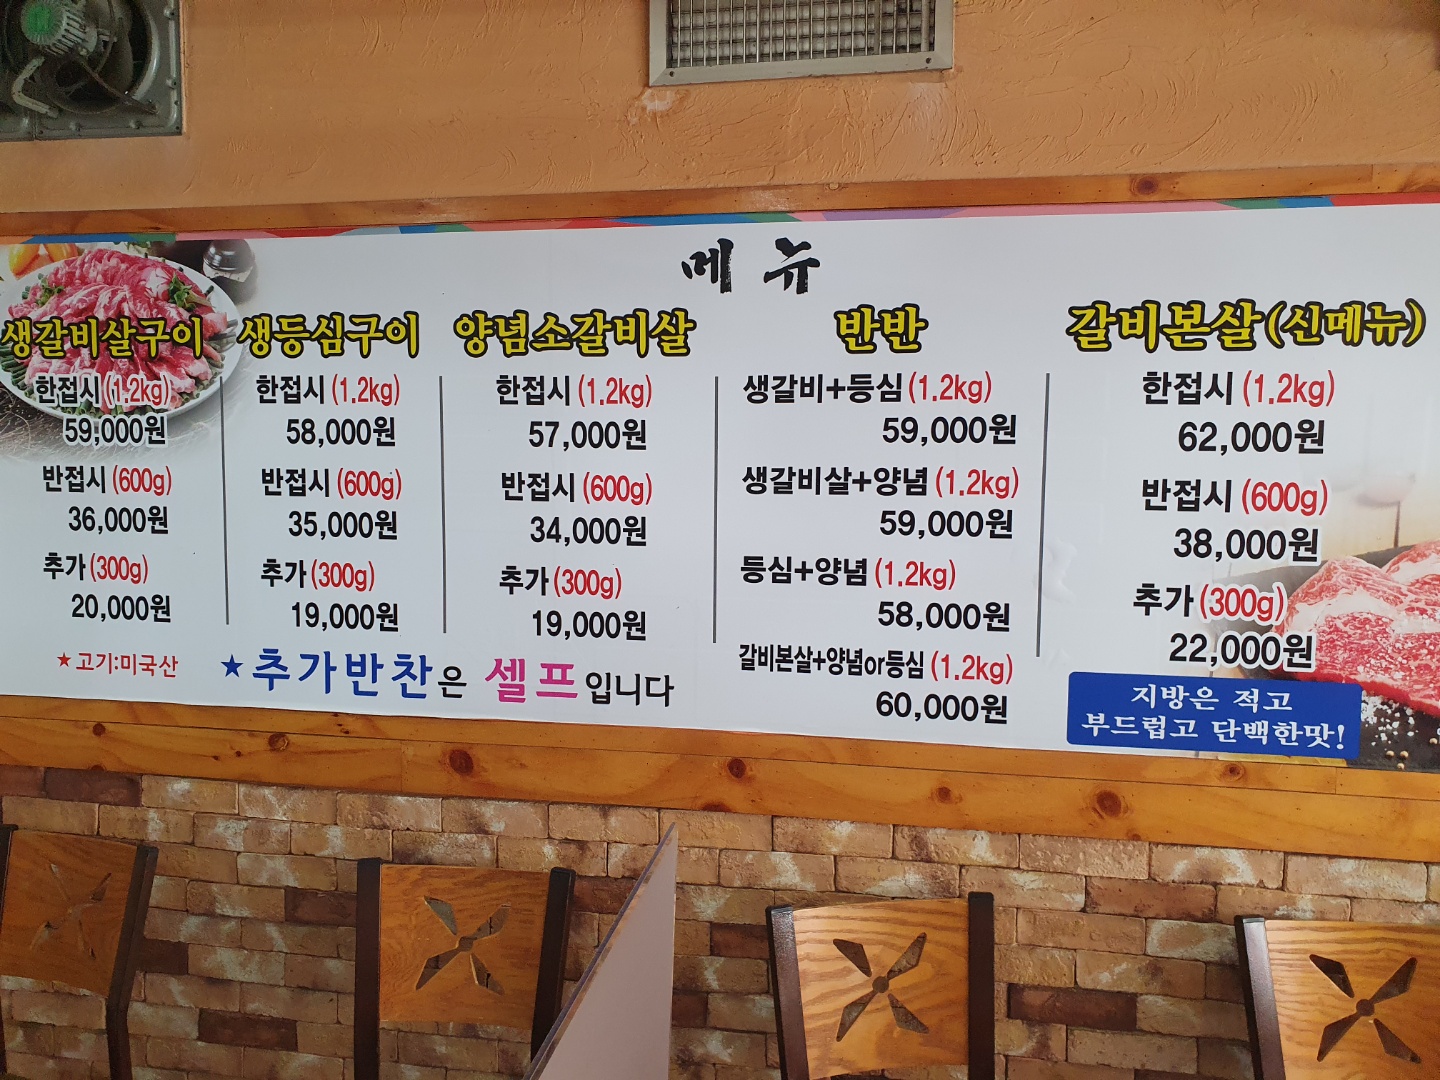 메뉴
생갈비살구이
한접시(1.2kg)
59,000원
반접시(600g)
36,000원
추가(300g)
20,000원
★고기:미국산
생등심구이
한접시(1.2kg)
58,000원
반접시(600g)
35,000원
추가(300g)
19,000원
양념소갈비살
한접시(1.2kg)
57,000원
반접시(600g)
34,000원
추가(300g)
19,000원
★추가반찬은 셀프입니다
반반
생갈비+등심(1.2kg)
59,000원
생갈비살+양념(1.2kg)
59,000원
등심+양념(1.2kg)
58,000원
갈비본살+양념or등심(1.2kg)
60,000원
갈비본살(신메뉴)
한접시(1.2kg)
62,000원
반접시(600g)
38,000원
추가(300g)
22,000원
지방은 적고
부드럽고 단백한맛!